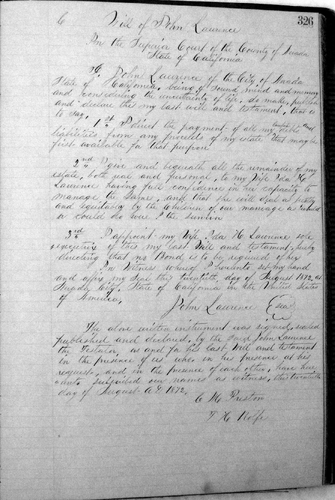 326
Will of John Lawrence
In the Superior Court of the County of
State of California
I, John Lawrence of the City of
State of California, being of sound mind and memory
and considering the uncertainty of life, do make, publish
and declare this my last will and testament, that is
to say,
1st I direct the payment of all my debts and
liabilities from any proceeds of my estate that may be
first available for that purpose
2nd I give and bequeath all the remainder of my
estate, both real and personal, to my wife Ida H.
Lawrence having full confidence in her capacity to
manage the same, and that she will deal as justly
and equitably by the children of our marriage as I should
or could do were I the survivor
3rd I appoint my wife Ida H Lawrence sole
executrix of this my last Will and testament, hereby
directing that no Bond is to be required of her
In Witness whereof I hereunto set my hand
and affix my seal this twentieth day of August 1872, at
City, State of California in the United States
of America,
John Lawrence Seal
The above written instrument was signed, sealed
published and declared, by the said John Lawrence
the Testator, as and for his last Will and testament
in the presence of us who in his presence at his
request, and in the presence of each other, have here
unto subscribed our names as witness, this twentieth
day of August A.D 1872,
E. M. Preston
T. H. Rolfe